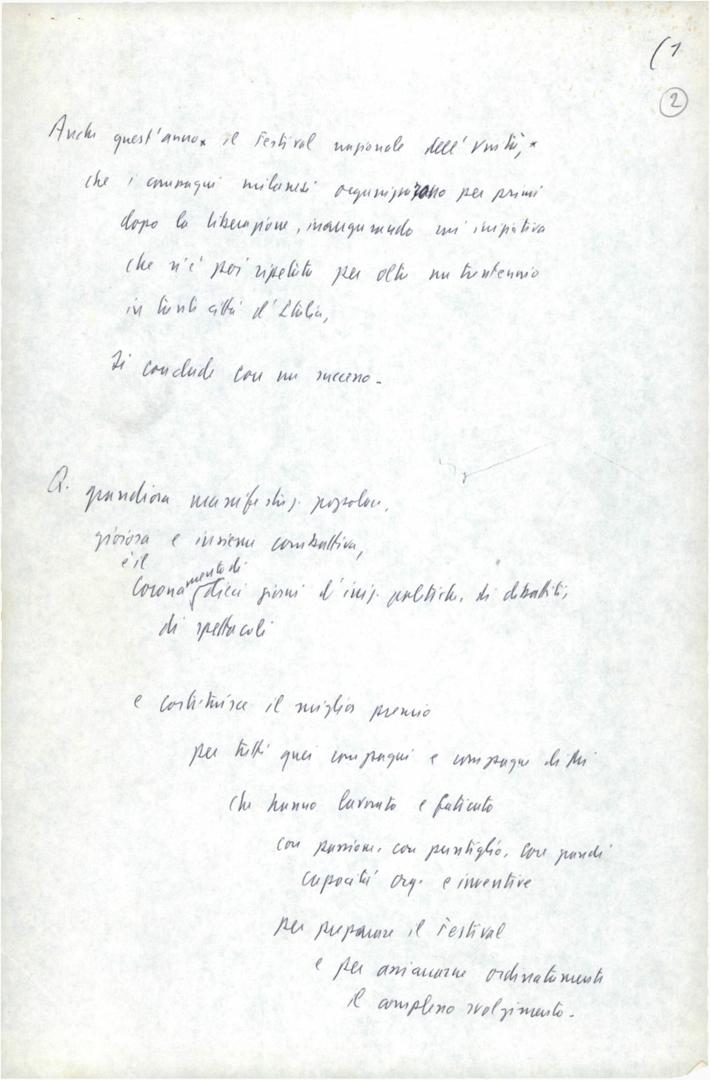 (1
2
Anche quest'anno x il Festival nazionale dell'Unità, x
che i compagni milanesi organizzarono per primi
dopo la liberazione, inaugurando un'iniziativa
che s'è poi ripetuta per oltre un trentennio
in tante città d'Italia,
si conclude con un successo.
Q. grandiosa manifestaz. popolare,
gioiosa e insieme combattiva,
è il
coronamento di dieci giorni d'iniz. politiche, di dibattiti,
di spettacoli
e costituisce il miglior premio
per tutti quei compagni e compagne di Mi
che hanno lavorato e faticato
con passione, con puntiglio, con grandi
capacità org. e inventive
per preparare il Festival
e per assicurarne ordinatamente
il complesso svolgimento.